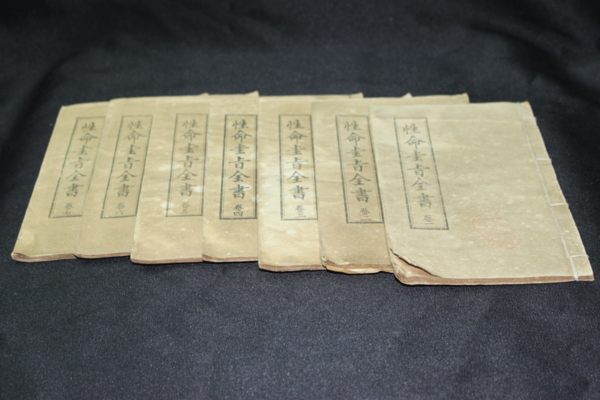 性命圭旨全書 卷七
性命圭旨全書 卷六
性命圭旨全書 卷五
性命圭旨全書 卷四
性命圭旨全書 卷三
性命圭旨全書 卷一
性命圭旨全書 卷二